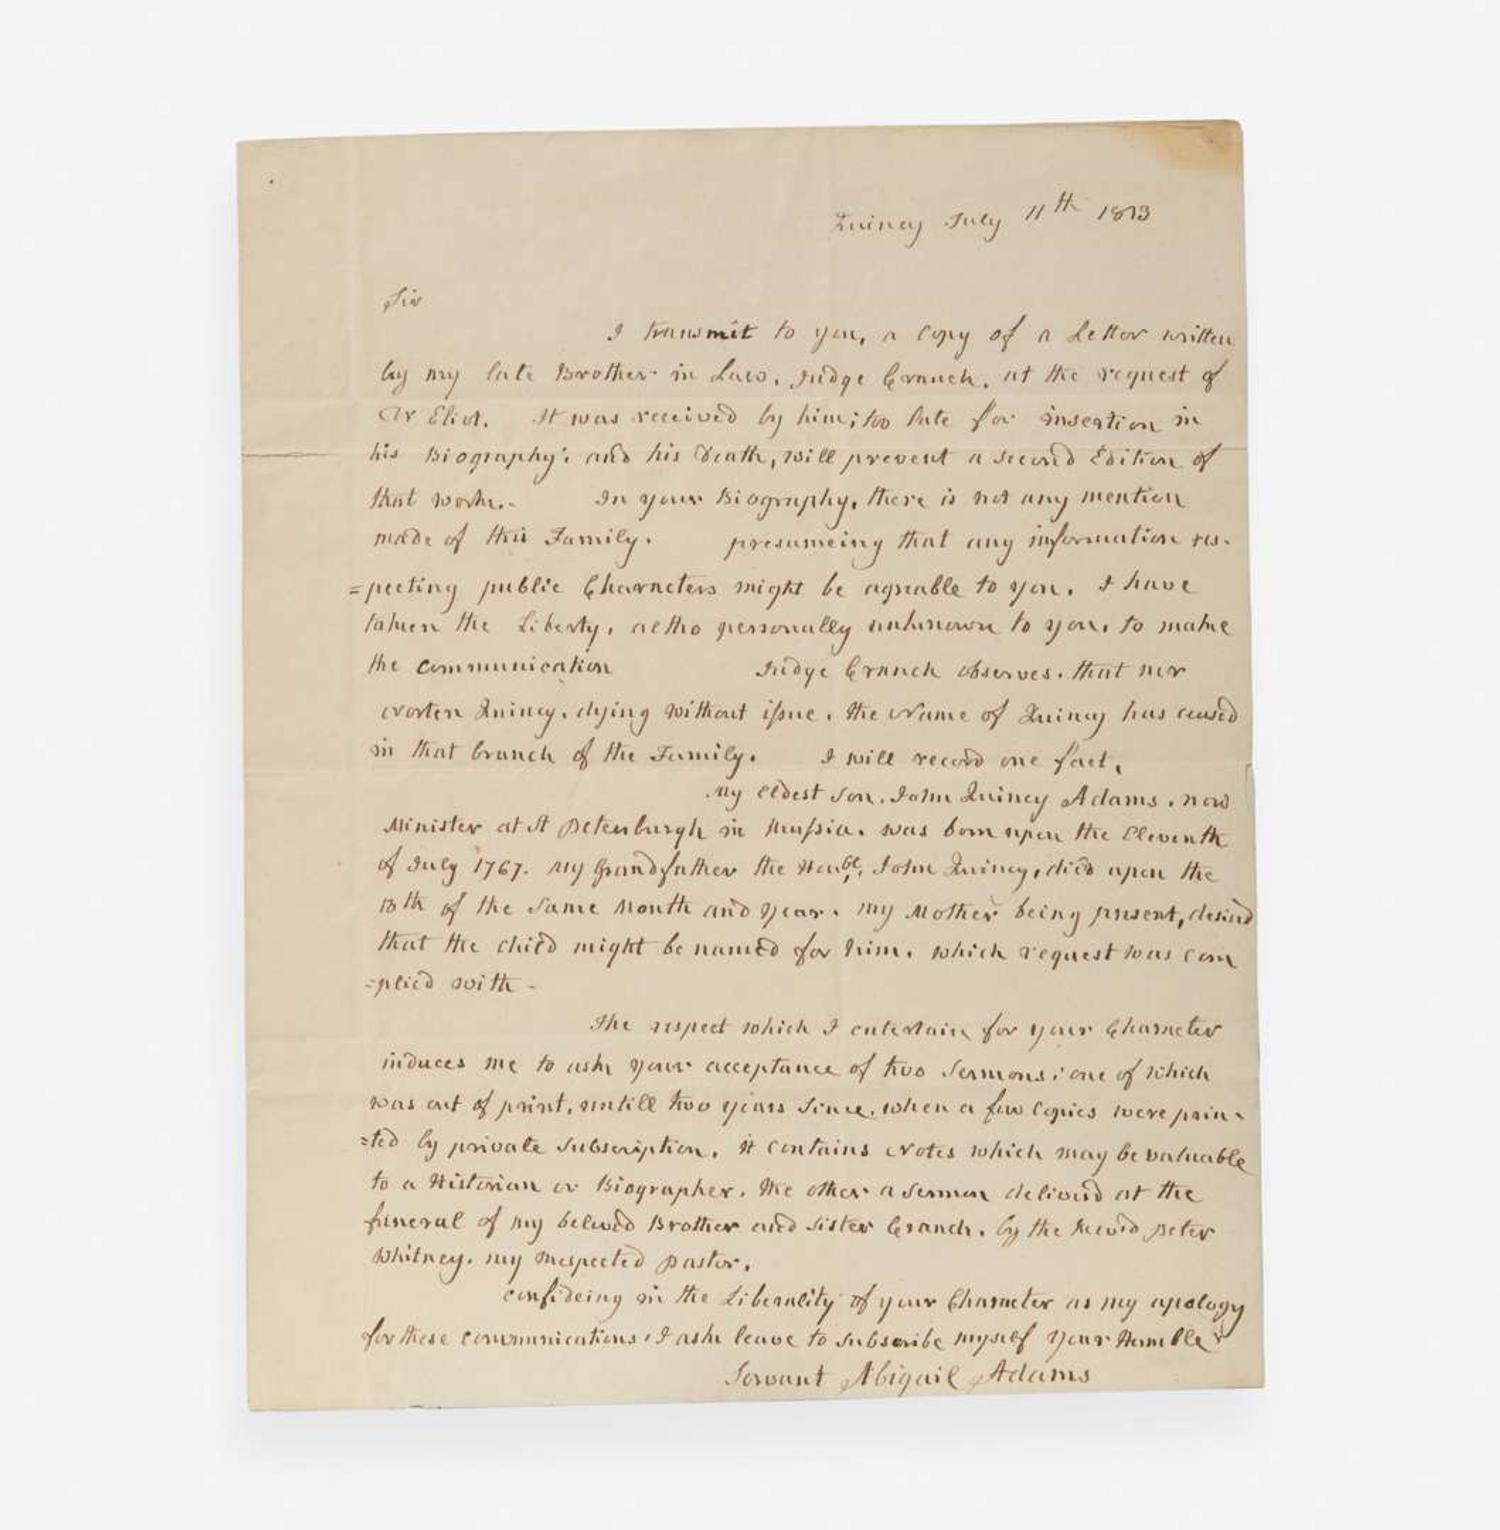 Quincy July 11th 1813
Sir
I transmit to you, a copy of a Letter written
by my late Brother in Law, Judge Cranch, at the request of
Dr Eliot. It was received by him; too late for insertion in
his Biography; and his death, will prevent a second Edition of
that work.- In your Biography, there is not any mention
made of this Family. presumeing that any information res-
=pecting public Characters might be agreable to you, I have
taken the Liberty, altho personally unknown to you, to make
the communication Judge Cranch observes, that mr
Norten Quincy, dying without issue, the Name of Quincy has ceased
in that branch of the Family. I will record one fact,
My eldest son, John Quincy Adams, now
Minister at St Petersburgh in Russia, was born upon the Eleventh
of July 1767. My Grandfather the Honble. John Quincy, died upon the
13th of the same Month and Year. My Mother being present, desired
that the child might be named for him, which request was com
=plied with -
The respect which I entertain for your Character
induces me to ask your acceptance of two Sermons; one of which
was out of print, untill two years since, when a few copies were prin-
=ted by private subscription, it contains Notes which may be valuable
to a Historian or Biographer. The other a sermon deliverd at the
funeral of my beloved Brother and sister Cranch, by the Revd Peter
Whitney, my respected pastor.
confideing in the Liberality of your Character as my apology
for these communications, I ask leave to subscribe myself your Humble
Servant Abigail Adams